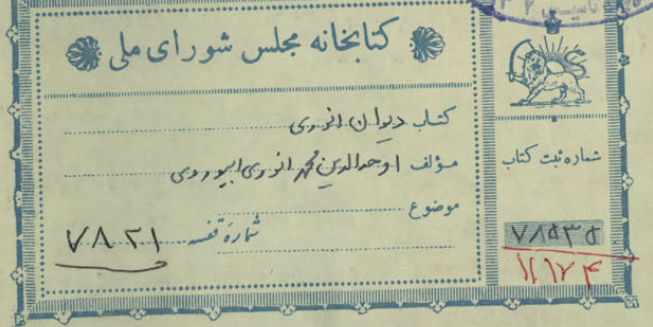 کتابخانه مجلس شورای ملی
کتاب دیوان انوری
مؤلف اوحدالدین محمد انوری ابیوردی
موضوع
شماره قفسه ۷۸۲۱
شماره ثبت کتاب
۷۸۵۳۵
۱۱۱۷۴